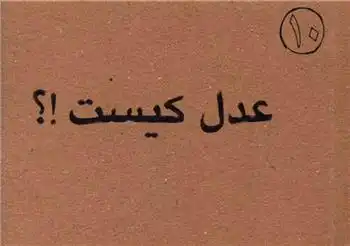 ۱۰
عدل کیست !؟